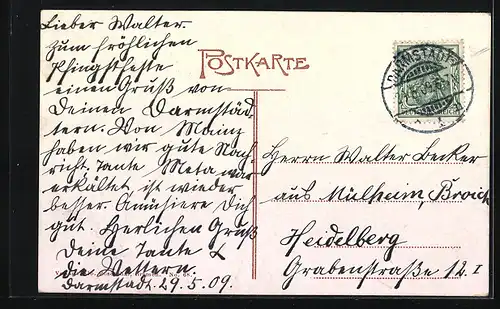 Lieber Walter.
Zum fröhlichen
Pfingstfeste
einen Gruß von
Deinen Darmstäd-
tern. Von Mainz
haben wir gute Nach-
richt. Tante Meta war
erkältet ist wieder
besser. Amüsiere Dich
gut. Herzlichen Gruß
Deine Tante &
die Vettern.
Darmstadt. 29.5.09.
POSTKARTE
DARMSTADT
Herrn Walter Becker
aus Mülheim, Broich
Heidelberg
Grabenstraße 12 I